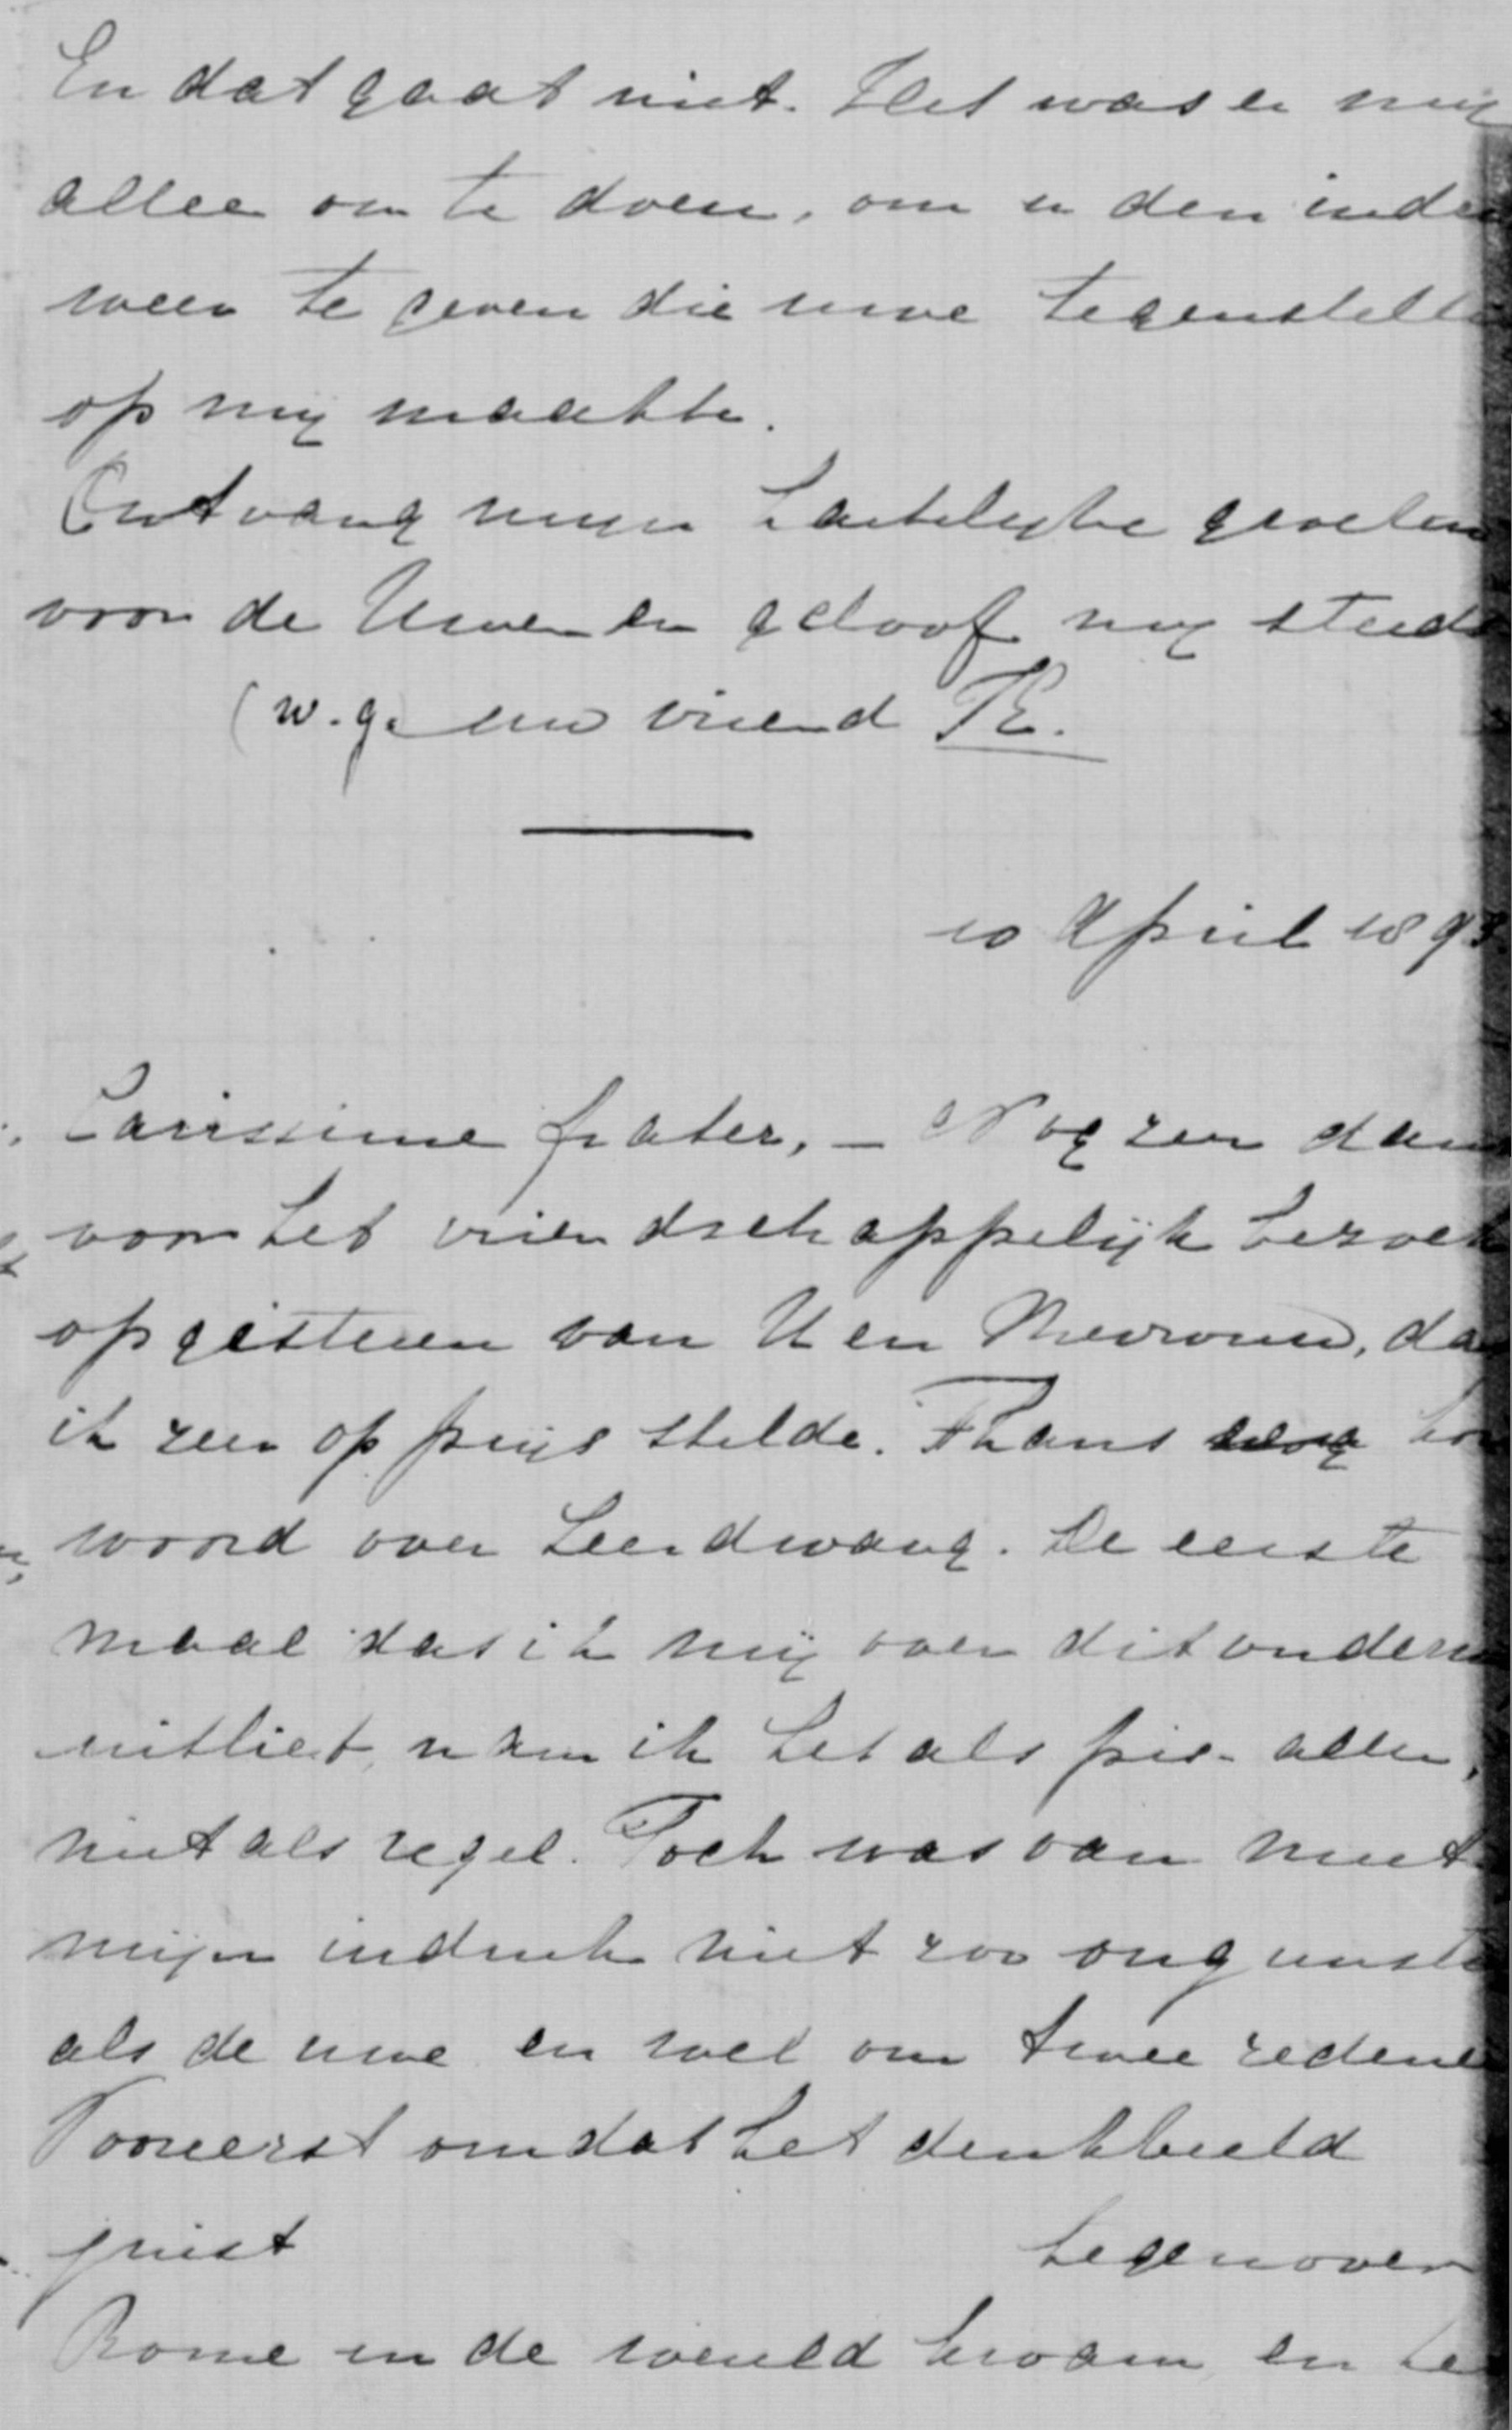 En dat gaat niet. Het was er mij
alleen om te doen, om u den indr
weer te geven die uwe tegenstell
op mij maakte.
Ontvang mijn hartelijke groeten
voor de Uwen en geloof mij steeds
(w.g. uw vriend
10 April 189
Carissime frater, – Nog zeer dan
voor het vriendschappelijk bezoek
op gisteren van U en Mevrouw, da
ik zeer op prijs stelde. Thans
woord over Leerdwang. De eerste
maal dat ik mij over dit onderw
uitliet, nam ik het als pis-aller,
niet als regel. Toch was van meet
mijn indruk niet zoo ongunsti
als de uwe en wel om twee redene
Vooreerst omdat het denkbeeld
juist tegenover
Rome in de wereld kwam, en te